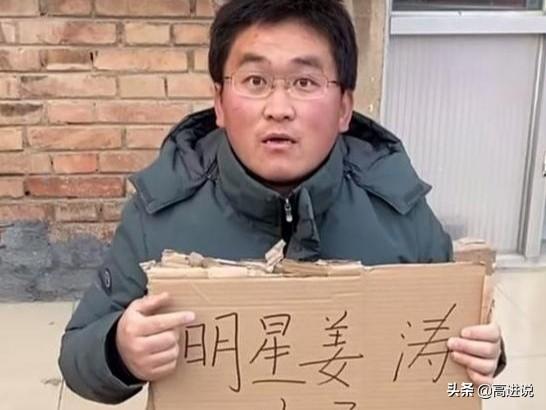 明星姜涛
头条 @高进说